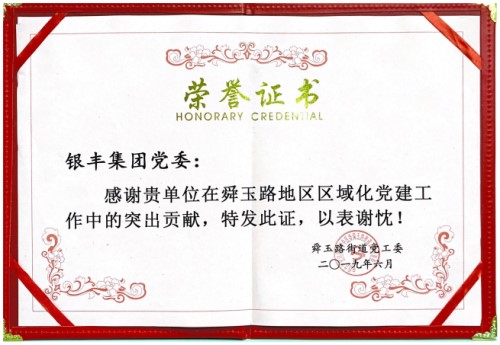 荣誉证书
HONORARY CREDENTIAL
银丰集团党委：
感谢贵单位在舜玉路地区区域化党建工
作中的突出贡献，特发此证，以表谢忱！
舜玉路街道党工委
二〇一九年六月